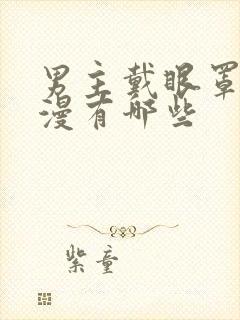 男主戴眼罩
漫有哪些
紫童